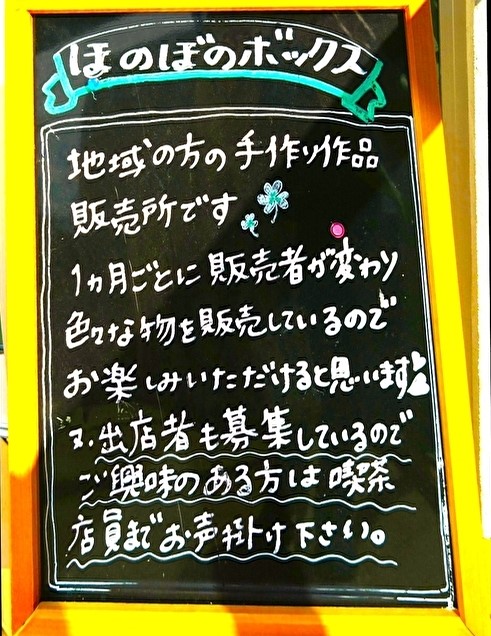 ほのぼのボックス
地域の方の手作り作品
販売所です
1ヵ月ごとに販売者が変わり
色々な物を販売しているので
お楽しみいただけると思います
又、出店者も募集しているので
ご興味のある方は喫茶
店員までお声掛け下さい。